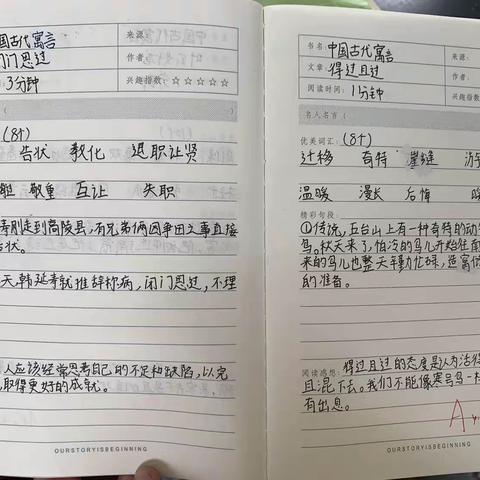 国古代寓言
来源:
闭门思过
作者:
:3分钟
兴趣指数:☆☆☆☆☆
(8个)
告状 教化 退职让贤
敬重 互让 失职
寿刚走到高陵县,有兄弟俩因争田之事直接
告状。
天,韩延寿就推辞称病,闭门思过,不理
人应该经常思考自己的不足和缺陷,以完
取得更好的成就。
OURSTORYISBEGINNING
书名:中国古代寓言
来源:
文章:得过且过
作者:
阅读时间:1分钟
兴趣指数:
名人名言(
优美词汇:(8个)
迁移 奇特 崖缝
温暖 漫长 后悔
精彩句段:
①传说,五台山上有一种奇特的动
鸟。秋天来了,怕冷的鸟儿开始往南
来的鸟儿也整天辛勤忙碌,造窝
的准备。
阅读感想: 得过且过的态度是认为活得
且混下去。我们不能像寒号鸟一样
有出息。
A
OURSTORYISBEGINNING